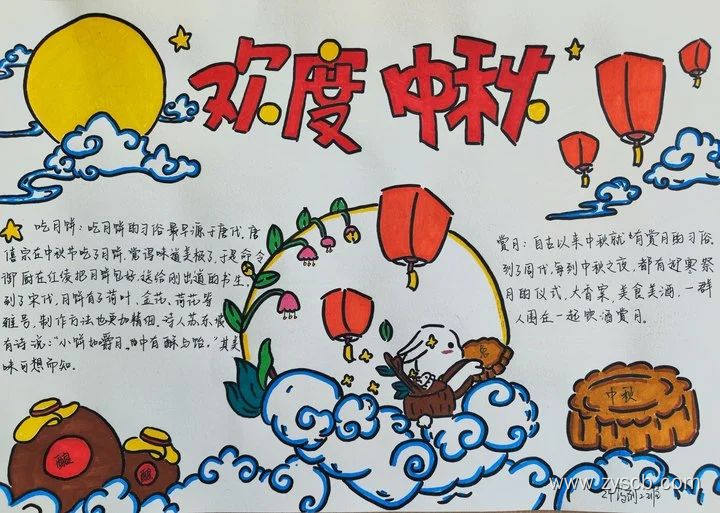 欢度中秋
吃月饼:吃月饼的习俗最早源于唐代,唐
僖宗在中秋节吃了月饼,觉得味道美极了,于是命令
御厨在红绫把月饼包好,送给刚出道的书生。
到了宋代,月饼有了荷叶,金花,荷花等
雅号,制作方法也更加精细。诗人苏东坡
有诗说:"小饼如嚼月,中有酥与饴。"其美
味可想而知。
赏月:自古以来中秋就有赏月的习俗,
到了周代,每到中秋之夜,都有迎寒祭
月的仪式,大香案,美食美酒,一群
人围在一起饮酒赏月。
中秋
www.zyscb.com